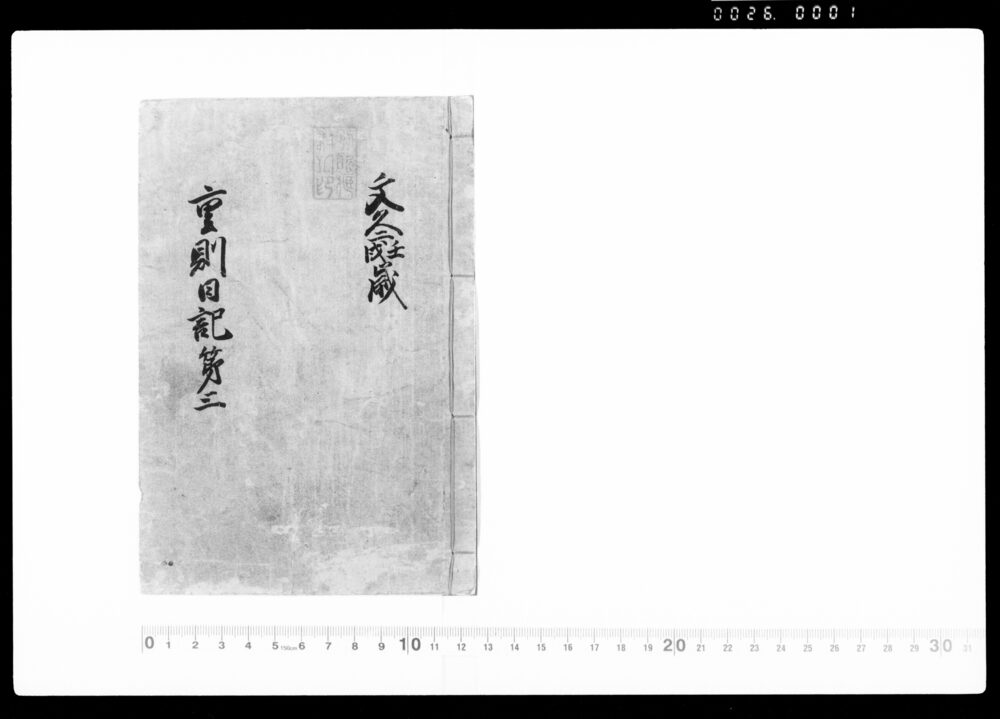 0026. 0001
文久二壬戌歳
重則日記第三
0 1 2 3 4 5 150cm 6 7 8 9 10 11 12 13 14 15 16 17 18 19 20 21 22 23 24 25 26 27 28 29 30 31